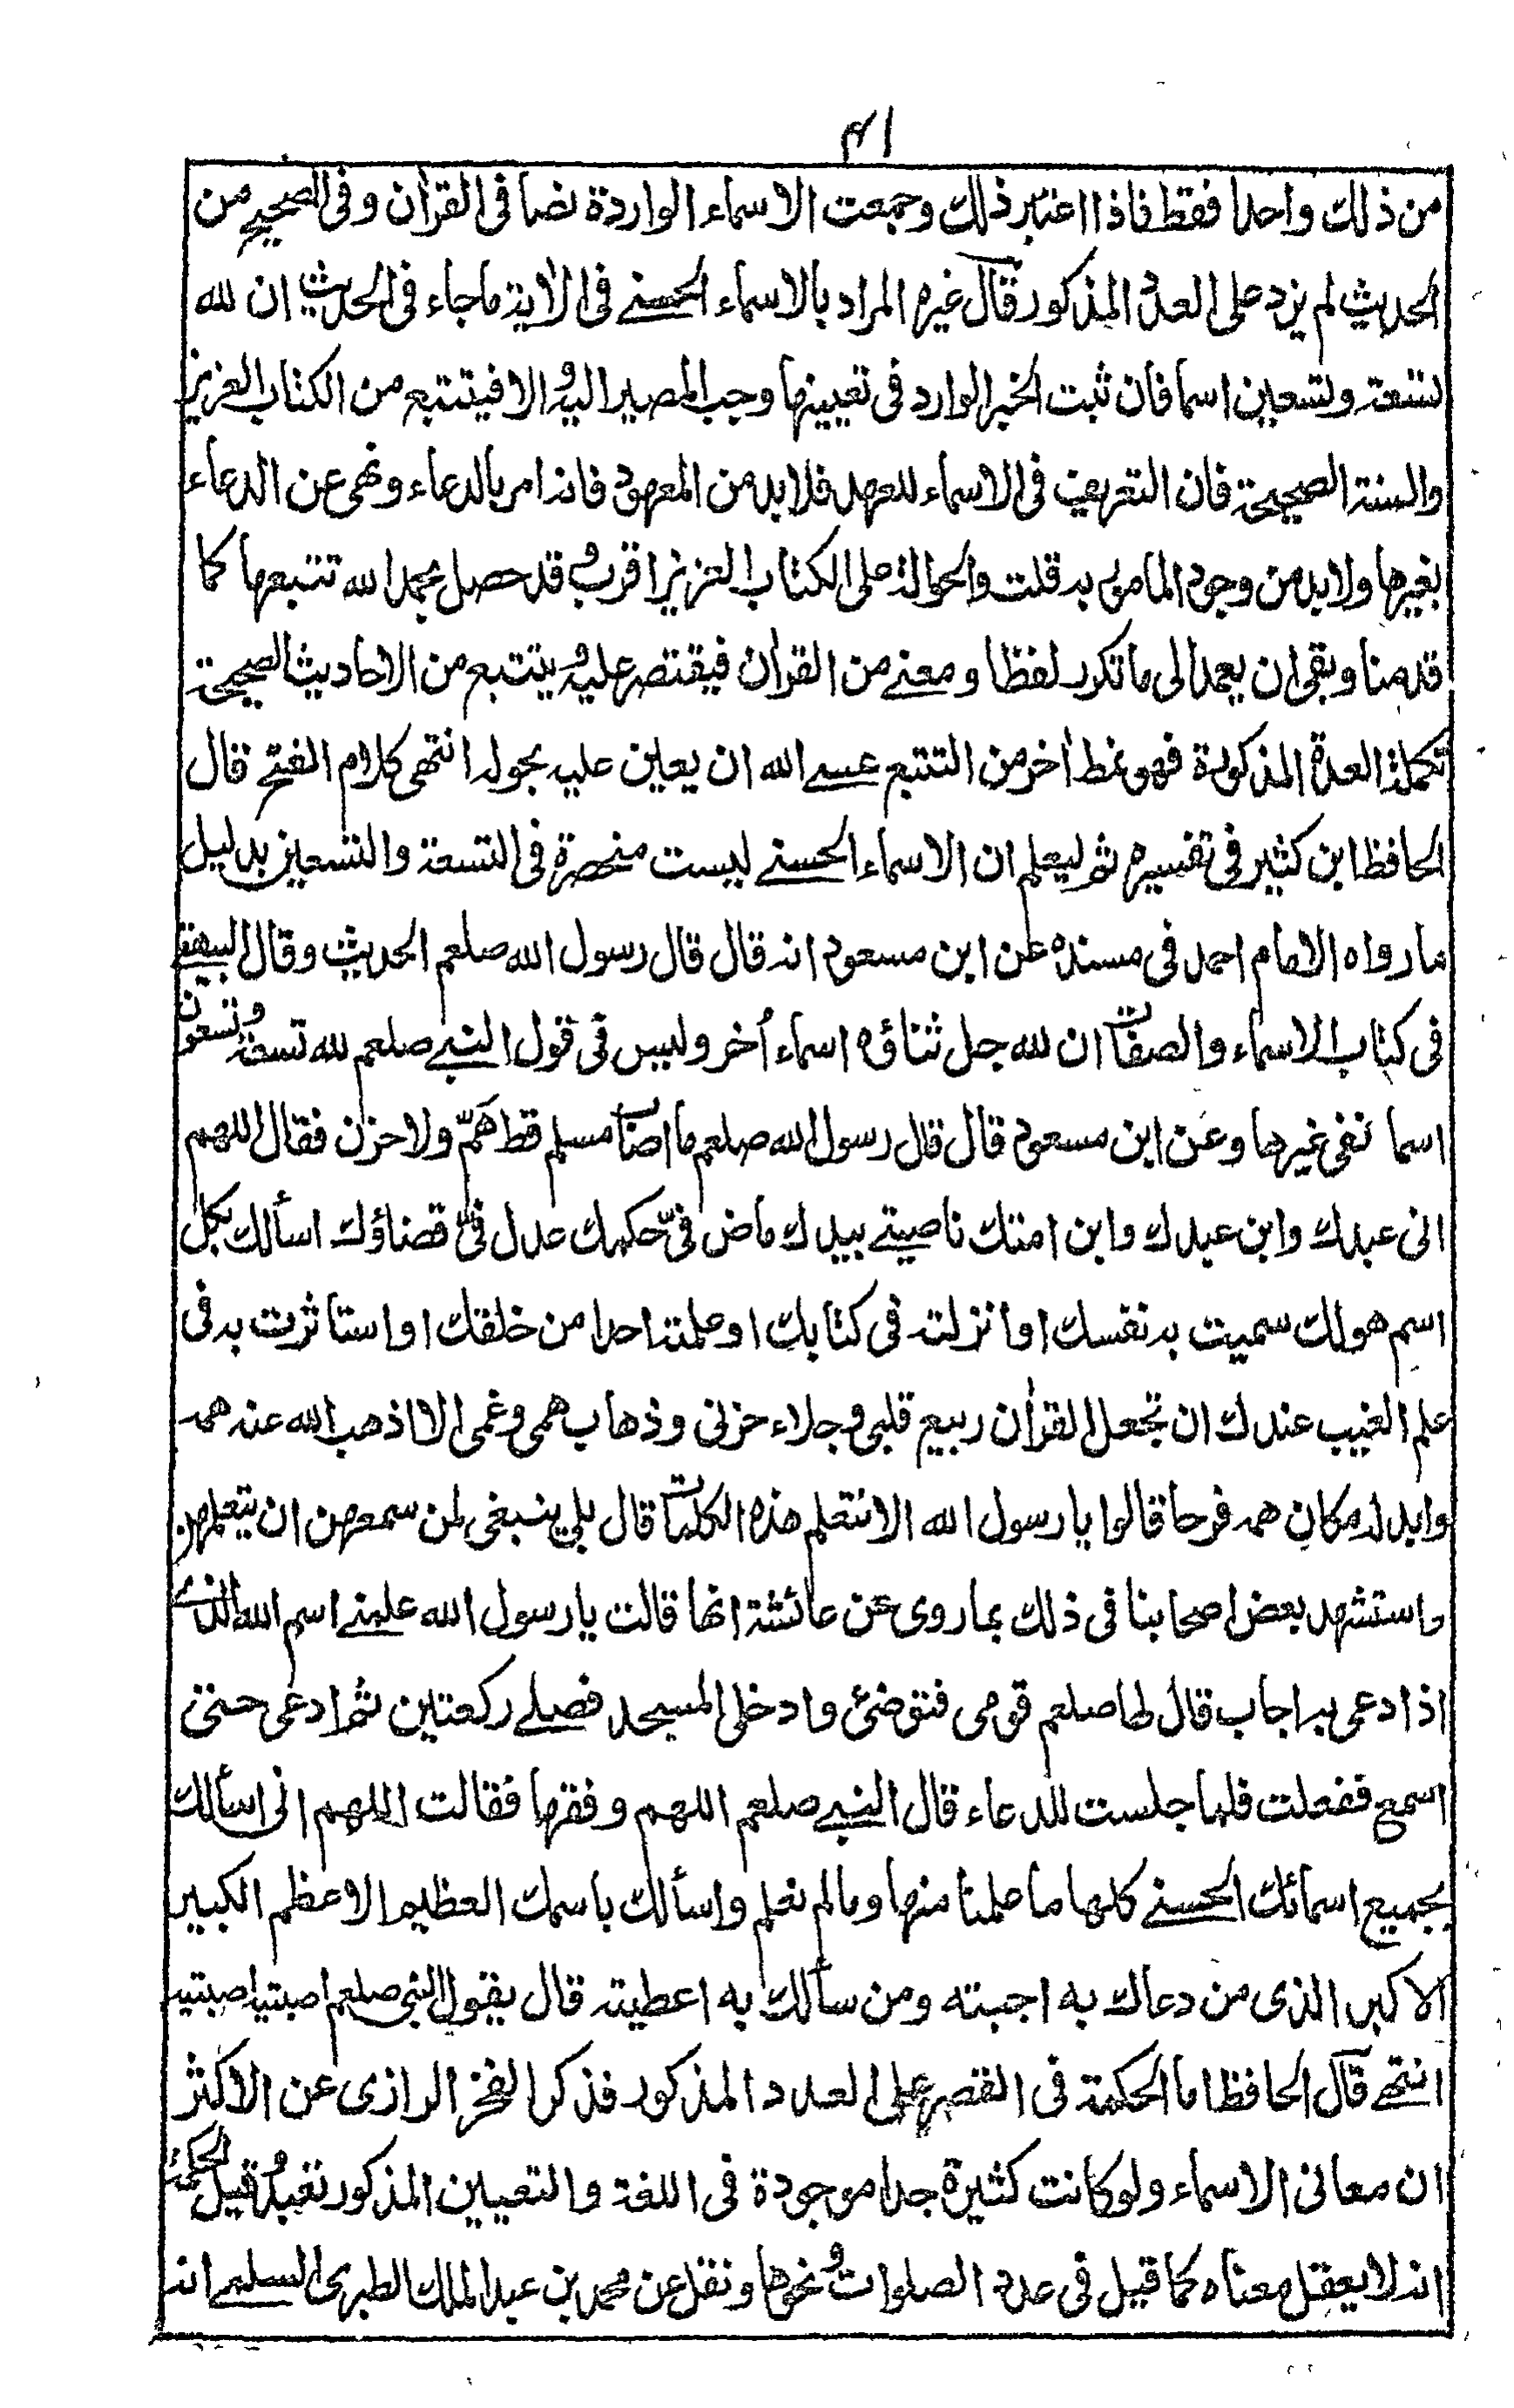 ۴۱
من ذلك واحدا فقط فاذا اعتبر ذلك وجمعت الاسماء الواردة نصا فى القرآن وفى الصحيح من
الحديث لم يزد على العدد المذكور قال غيره المراد بالاسماء الحسنے فى الآية ماجاء فى الحديث ان لله
تسعة وتسعين اسما فان ثبت الخبر الوارد فى تعيينها وجب المصير اليه والا فيتتبع من الكتاب العزيز
والسنة الصحيحة فان التعريف فى الاسماء للعهد فلابد من المعهود فانه امر بالدعاء ونهى عن الدعاء
بغيرها ولابد من وجود المامور به قلت والحوالة على الكتاب العزيز اقرب وقد حصل بحمد الله تتبعها كما
قدمنا وبقى ان يعمد الى ماتكرر لفظا ومعنے من القرآن فيقتصر عليه ويتتبع من الاحاديث الصحيحة
تكملة العدة المذكورة فهو نمط آخر من التتبع عسے الله ان يعين عليه بحوله انتهى كلام الفتح قال
الحافظ ابن كثير فى تفسيره ثم ليعلم ان الاسماء الحسنے ليست منحصرة فى التسعة والتسعين بدليل
مارواه الامام احمد فى مسنده عن ابن مسعود انه قال قال رسول الله صلعم الحديث وقال البيهقے
فى كتاب الاسماء والصفات ان لله جل ثناؤه اسماء أخر وليس فى قول النبے صلعم لله تسعة وتسعون
اسما نفى غيرها وعن ابن مسعود قال قال رسول الله صلعم ما اصاب مسلم قط همّ ولا حزن فقال اللهم
انى عبدك وابن عبدك وابن امتك ناصيتے بيدك ماض فىّ حكمك عدل فىّ قضاؤك اسألك بكل
اسم هولك سميت به نفسك او انزلته فى كتابك اوعلمته احدا من خلقك او استاثرت به فى
علم الغيب عندك ان تجعل القرآن ربيع قلبى وجلاء حزنى وذهاب همى وغمى الا اذهب الله عنه همه
وابدله مكان همه فرحا قالوا يا رسول الله الا نتعلم هذه الكلمات قال بلى ينبغى لمن سمعهن ان يتعلمهن
واستشهد بعض اصحابنا فى ذلك بماروى عن عائشة انها قالت يا رسول الله علمنے اسم الله الذے
اذا دعى به اجاب قال لها صلعم قومى فتوضئى وادخلى المسجد فصلے ركعتين ثم ادعى حتى
اسمع ففعلت فلما جلست للدعاء قال النبے صلعم اللهم وفقها فقالت اللهم انى اسألك
بجميع اسمائك الحسنے كلها ما علمنا منها ومالم نعلم واسألك باسمك العظيم الاعظم الكبير
الاكبر الذى من دعاك به اجبته ومن سألك به اعطيته قال يقول النبى صلعم اصبتيه اصبتيه
انتهے قال الحافظ اما الحكمة فى القصر على العدد المذكور فذكر الفخر الرازى عن الاكثر
ان معانى الاسماء ولوكانت كثيرة جدا موجودة فى اللغة والتعيين المذكور تعبد وقيل الحكمة
انه لا يعقل معناه كما قيل فى عدد الصلوات ونحوها ونقل عن محمد بن عبد الملك الطبرى السلمے انه